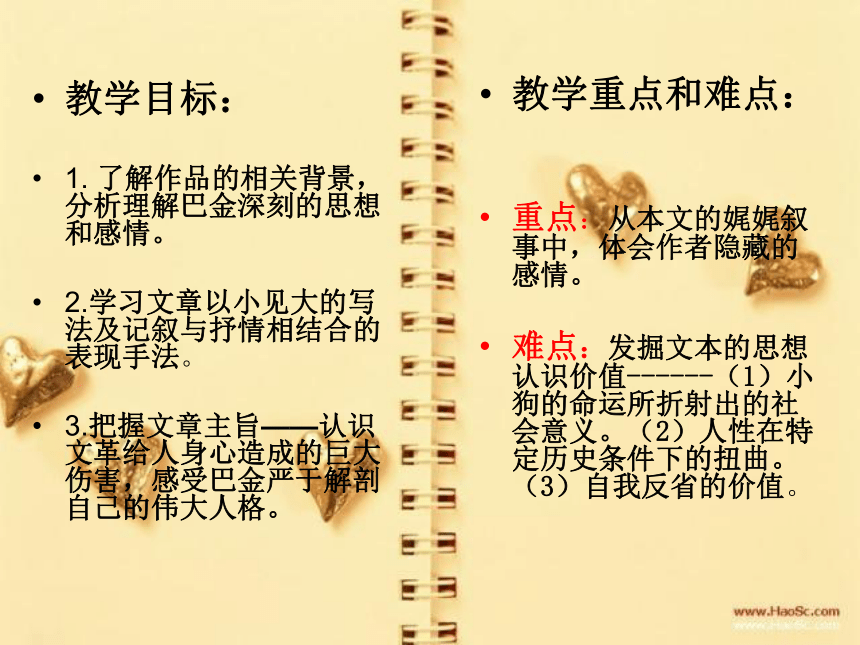 • 教学目标：
• 1. 了解作品的相关背景，
分析理解巴金深刻的思想
和感情。
• 2.学习文章以小见大的写
法及记叙与抒情相结合的
表现手法。
• 3.把握文章主旨——认识
文革给人身心造成的巨大
伤害，感受巴金严于解剖
自己的伟大人格。
• 教学重点和难点：
• 重点：从本文的娓娓叙
事中，体会作者隐藏的
感情。
• 难点：发掘文本的思想
认识价值------（1）小
狗的命运所折射出的社
会意义。（2）人性在特
定历史条件下的扭曲。
（3）自我反省的价值。
www.HaoSc.com